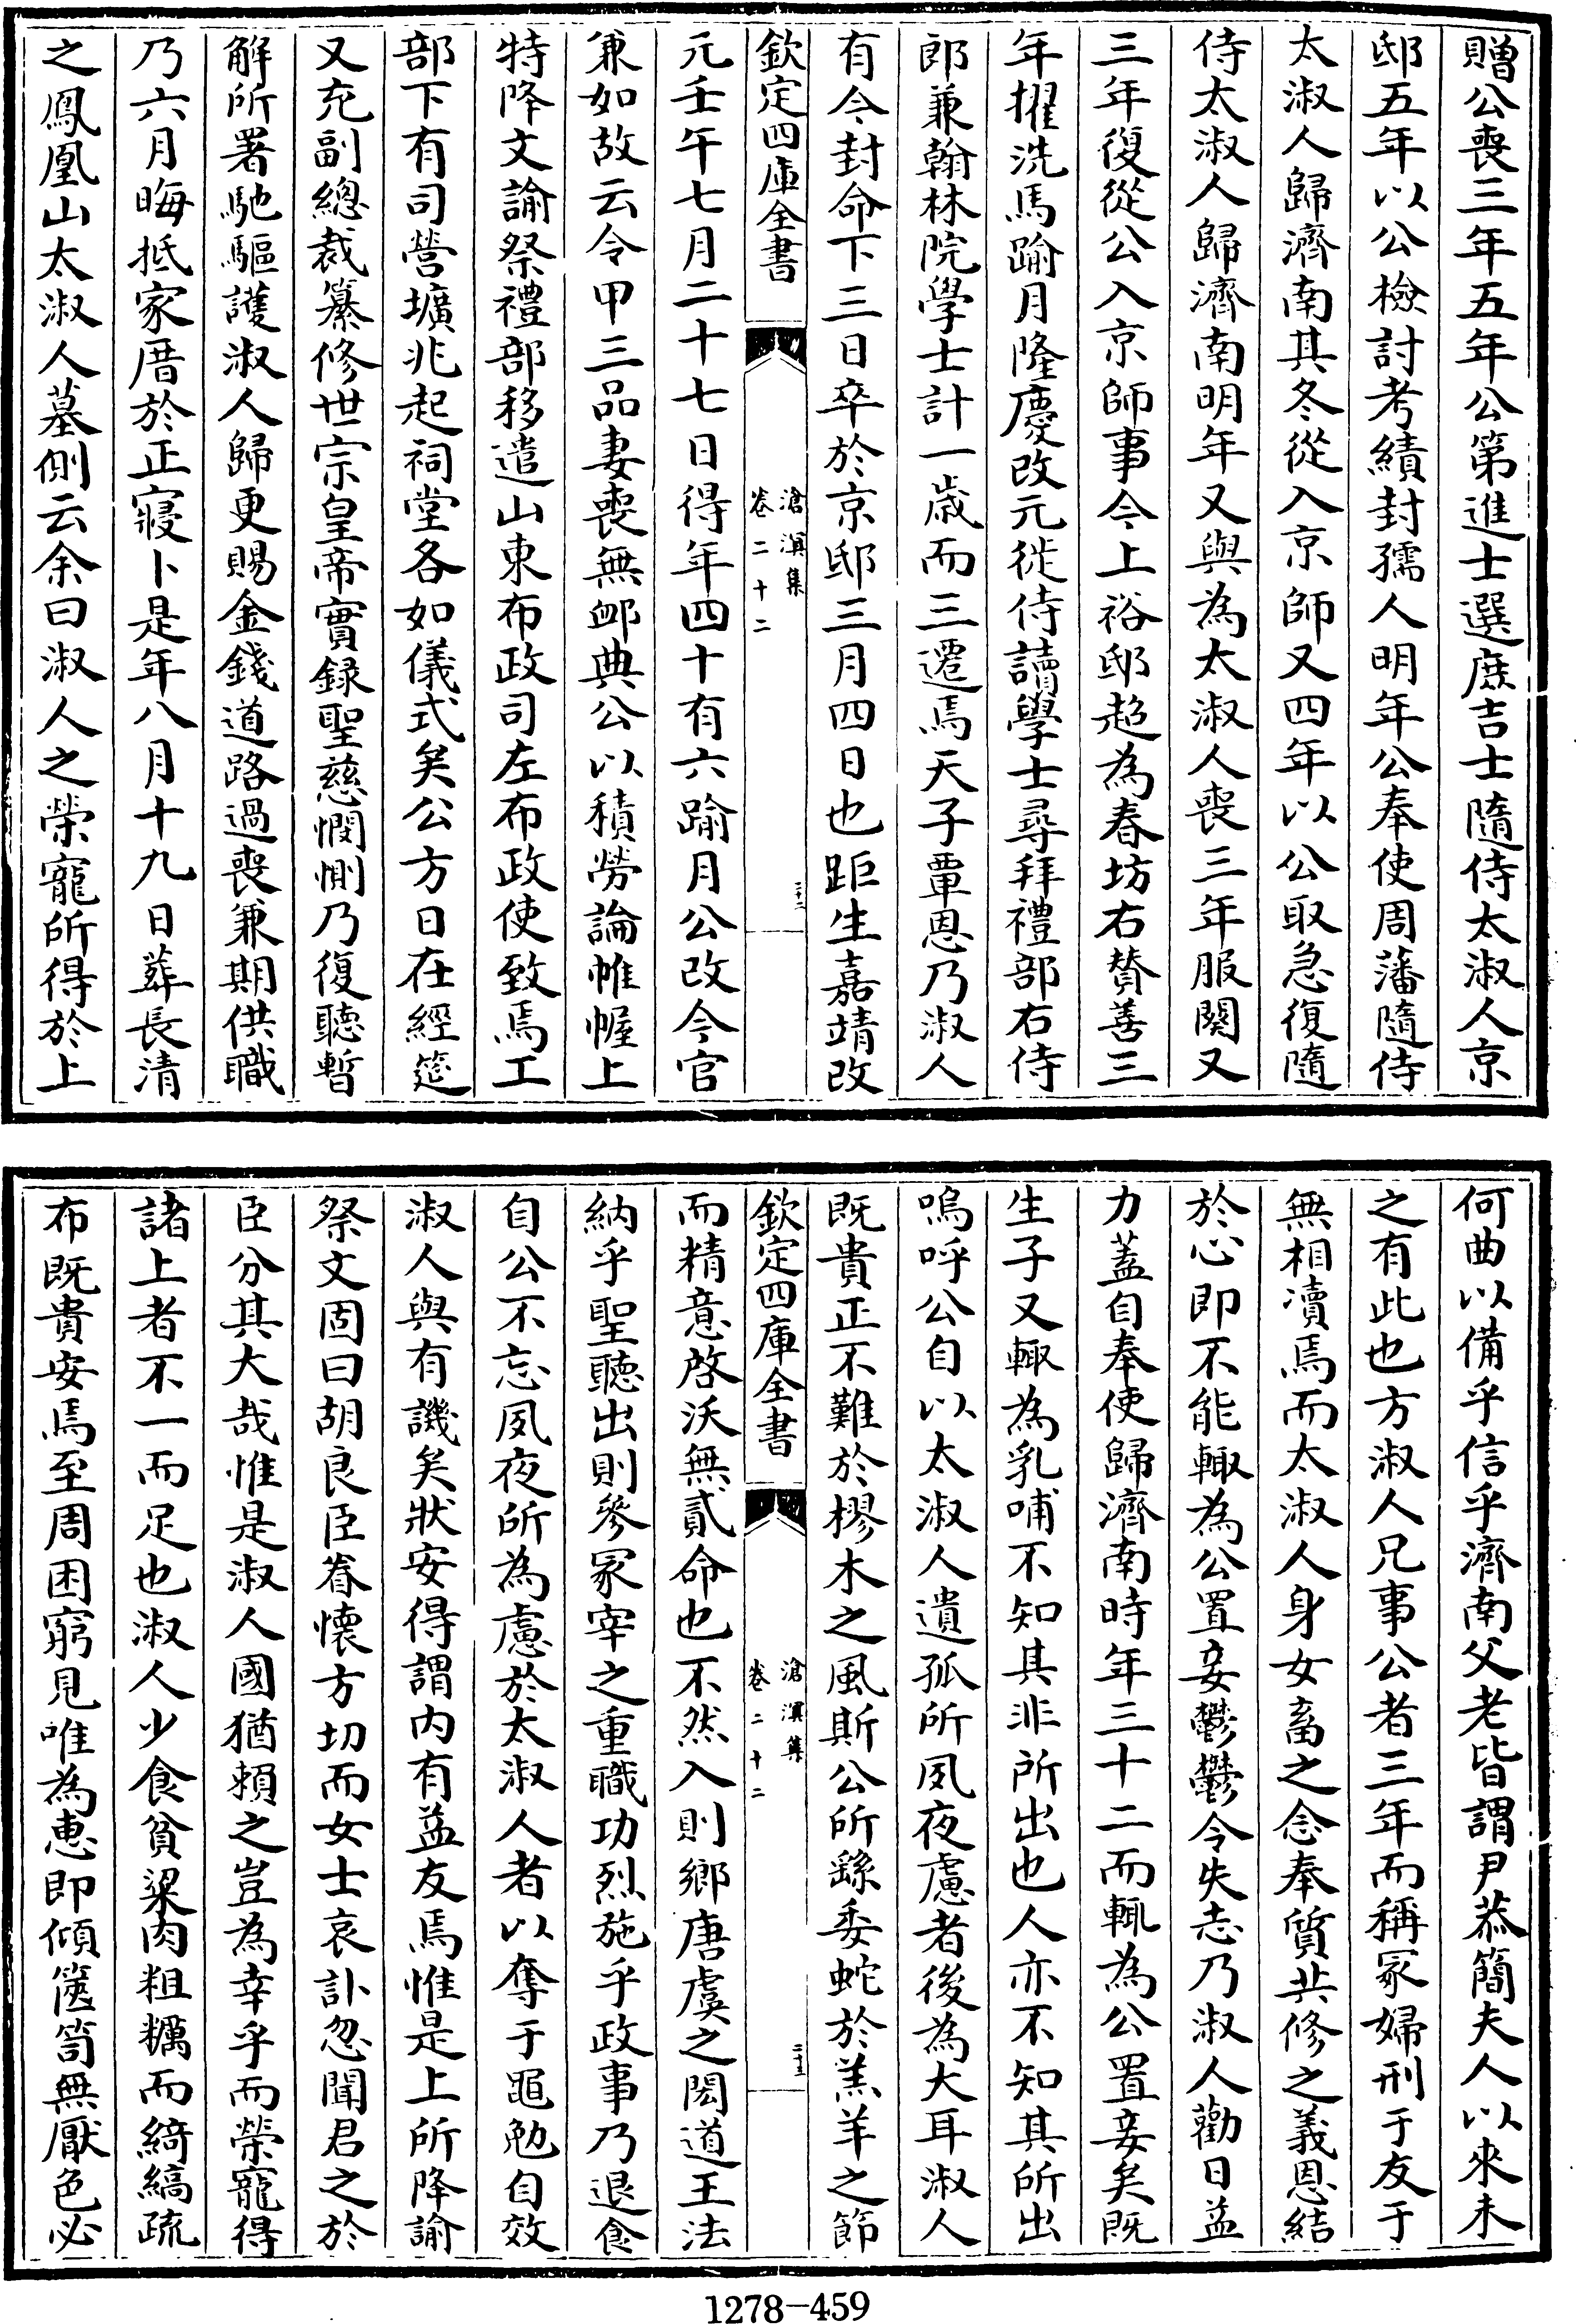 贈公喪三年五年公第進士選庶吉士隨侍太淑人京
邸五年以公檢討考績封孺人明年公奉使周藩隨侍
太淑人歸濟南其冬從入京師又四年以公取急復隨
侍太淑人歸濟南明年又與為太淑人喪三年服闋又
三年復從公入京師事今上裕邸超為春坊右賛善三
年擢洗馬踰月隆慶改元徙侍讀學士尋拜禮部右侍
郎兼翰林院學士計一歲而三遷焉天子覃恩乃淑人
有今封命下三日卒於京邸三月四日也距生嘉靖改
欽定四庫全書
滄溟集
卷二十二
三十二
元壬午七月二十七日得年四十有六踰月公改今官
兼如故云令甲三品妻喪無䘏典公以積勞論帷幄上
特降文諭祭禮部移遣山東布政司左布政使致焉工
部下有司營壙兆起祠堂各如儀式矣公方日在經筵
又充副總裁纂修世宗皇帝實錄聖慈憫惻乃復聽暫
解所署馳驅護淑人歸更賜金錢道路過喪兼期供職
乃六月晦抵家厝於正寢卜是年八月十九日葬長清
之鳳凰山太淑人墓側云余曰淑人之榮寵所得於上
何曲以備乎信乎濟南父老皆謂尹恭簡夫人以來未
之有此也方淑人兄事公者三年而稱冢婦刑于友于
無相凟焉而太淑人身女畜之念奉質共修之義恩結
於心即不能輙為公置妾鬱鬱令失志乃淑人勸日益
力蓋自奉使歸濟南時年三十二而輒為公置妾矣既
生子又輙為乳哺不知其非所出也人亦不知其所出
嗚呼公自以太淑人遺孤所夙夜慮者後為大耳淑人
既貴正不難於樛木之風斯公所繇委蛇於羔羊之節
欽定四庫全書
滄溟集
卷二十二
三十三
而精意啓沃無貳命也不然入則鄉唐虞之閎道王法
納乎聖聽出則參冢宰之重職功烈施乎政事乃退食
自公不忘夙夜所為慮於太淑人者以奪于黽勉自效
淑人與有譏矣狀安得謂內有益友焉惟是上所降諭
祭文固曰胡良臣眷懷方切而女士哀訃忽聞君之於
臣分其大哉惟是淑人國猶賴之豈為幸乎而榮寵得
諸上者不一而足也淑人少食貧粱肉粗糲而綺縞疏
布既貴安焉至周困窮見唯為惠即傾篋笥無厭色必
1278-459